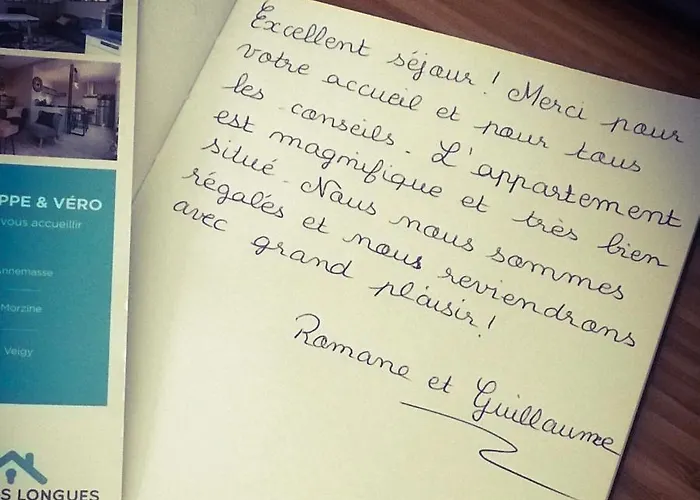 PPE & VÉRO
vous accueillir
nnemasse
Morzine
Veigy
S LONGUES
Excellent séjour ! Merci pour
votre accueil et pour tous
les conseils. L'appartement
est magnifique et très bien
situé. Nous nous sommes
régalés et nous reviendrons
avec grand plaisir !
Romane et Guillaume